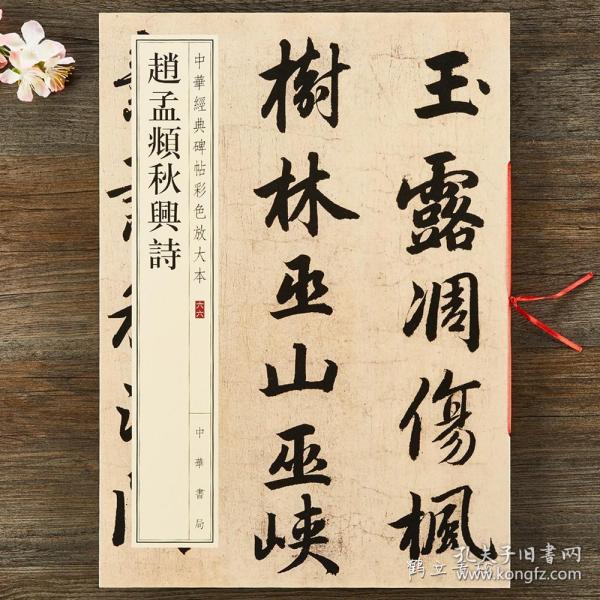 玉露凋傷楓
樹林巫山巫峽
中華經典碑帖彩色放大本
六六
趙孟頫秋興詩
中華書局
孔夫子旧書网
www.kongfz.com